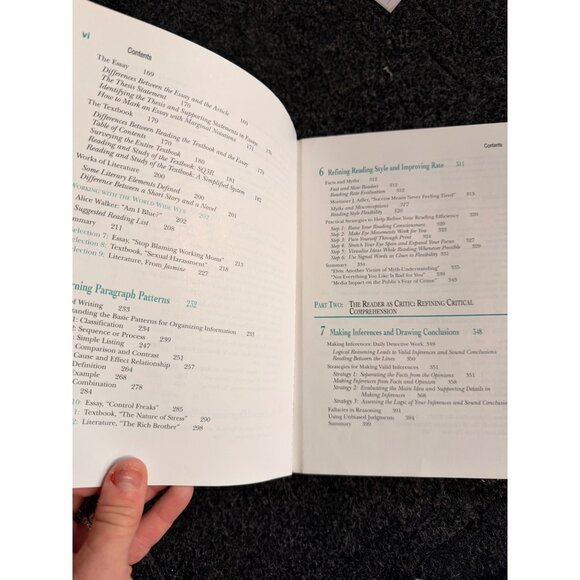 vi
Contents
The Essay 169
Differences Between the Essay and the Article 169
The Thesis Statement 170
Identifying the Thesis and Supporting Statements in Essays 170
How to Mark an Essay with Marginal Notations 171
The Textbook 170
Differences Between Reading the Textbook and the Essay
Table of Contents
Surveying the Entire Textbook
Reading and Study of the Textbook: SQ3R
Reading and Study of the Textbook: A Simplified System
Works of Literature 200
Some Literary Elements Defined 200
Difference Between a Short Story and a Novel 201
WORKING WITH THE WORLD WIDE WEB 202
Alice Walker: "Am I Blue?" 202
Suggested Reading List
Summary 211
Selection 7: Essay, "Stop Blaming Working Moms" 213
Selection 8: Textbook, "Sexual Harassment" 218
Selection 9: Literature, From Jasmine
rning Paragraph Patterns 232
of Writing 233
standing the Basic Patterns for Organizing Information 233
1: Classification 234
2: Sequence or Process 239
Simple Listing 247
Comparison and Contrast 251
Cause and Effect Relationship 257
Definition 264
Example 268
Combination 278
284
10: Essay, "Control Freaks" 285
1: Textbook, "The Nature of Stress" 290
2: Literature, "The Rich Brother" 298
Contents
6 Refining Reading Style and Improving Rate 311
Facts and Myths 312
Fast and Slow Readers 312
Reading Rate Evaluation
Mortimer J. Adler, "Success Means Never Feeling Tired" 313
Myths and Misconceptions 317
Reading Style Flexibility 320
Practical Strategies to Help Refine Your Reading Efficiency
Step 1: Raise Your Reading Consciousness
Step 2: Make Eye Movements Work for You
Step 3: Pace Yourself Through Print
Step 4: Stretch Your Eye Span and Expand Your Focus
Step 5: Visualize Ideas While Reading Whenever Possible
Step 6: Use Signal Words as Clues to Flexibility
Summary 334
"Elvis: Another Victim of Myth-Understanding"
"Not Everything You Like Is Bad for You"
"Media Impact on the Public's Fear of Crime" 345
PART TWO: THE READER AS CRITIC: REFINING CRITICAL
COMPREHENSION
7 Making Inferences and Drawing Conclusions 348
Making Inferences: Daily Detective Work 349
Logical Reasoning Leads to Valid Inferences and Sound Conclusions
Reading Between the Lines 350
Strategies for Making Valid Inferences 351
Strategy 1: Separating the Facts from the Opinions 351
Making Inferences from Facts and Opinion 358
Strategy 2: Evaluating the Main Idea and Supporting Details in
Making Inferences 368
Strategy 3: Assessing the Logic of Your Inferences and Sound Conclusion
Fallacies in Reasoning 391
Using Unbiased Judgments 394
Summary 399